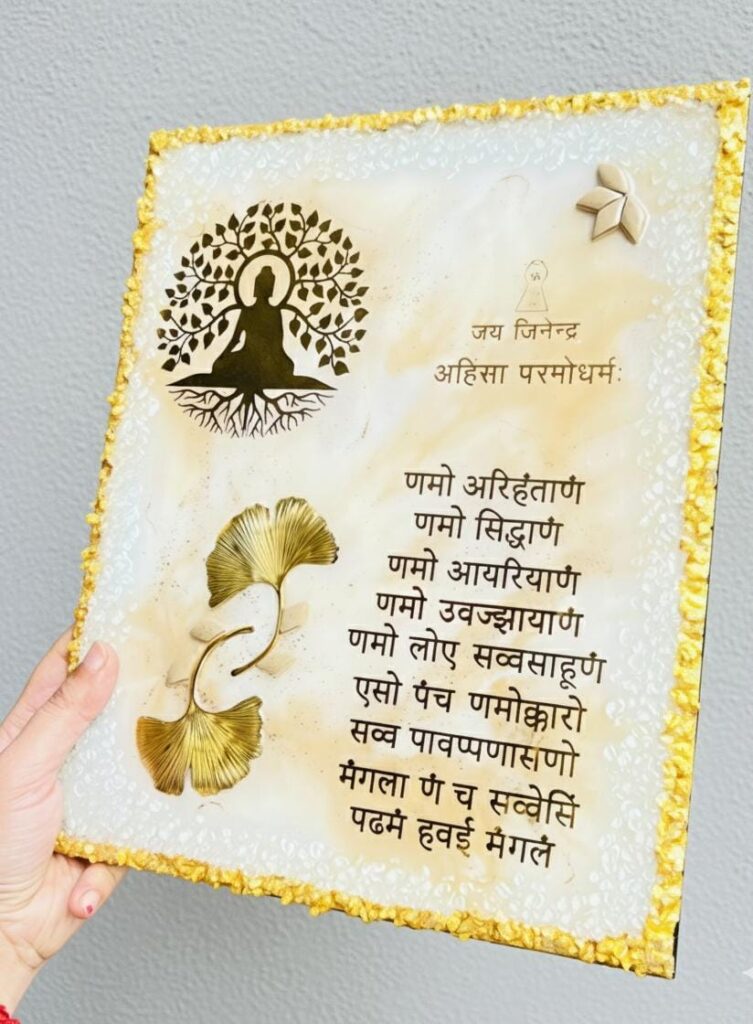 जय जिनेन्द्र
अहिंसा परमोधर्म:
णमो अरिहंताणं
णमो सिद्धाणं
णमो आयरियाणं
णमो उवज्झायाणं
णमो लोए सव्वसाहूणं
एसो पंच णमोक्कारो
सव्व पावप्पणासणो
मंगला णं च सव्वेसिं
पढमं हवई मंगलं